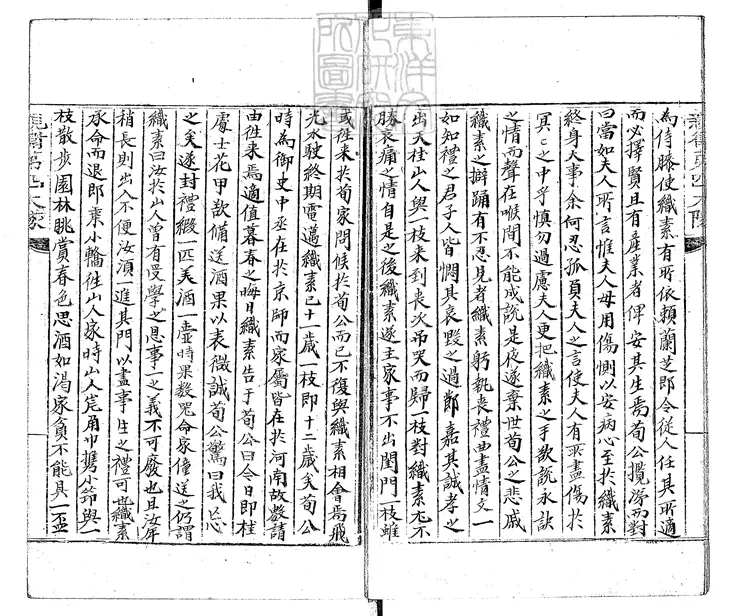 為侍媵使織素有所依賴蘭芝即令從人任其所適
而必擇賢且有產業者俾安其生焉荀公攬涕而對
曰當如夫人所言惟夫人毋用傷惻以安病心至於織素
終身大事余何忍孤負夫人之言使夫人有所盡傷於
冥冥之中乎慎勿過慮夫人更把織素之手欲說永訣
之情而聲在喉間不能成說是夜遂棄世荀公之悲戚
織素之擗踊有不忍見者織素躬執喪禮曲盡情文一
如知禮之君子人皆憫其哀毀之過而嘉其誠孝之
出天桂山人與一枝來到喪次吊哭而歸一枝對織素尤不
勝哀痛之情自是之後織素遂主家事不出閨門一枝雖
或往來於荀家問候於荀公而已不復與織素相會焉飛
光水駛終期電邁織素已十一歲一枝即十二歲矣荀公
時為御史中丞在於京師而家屬皆在於河南故數請
由往來焉適值暮春之晦日織素告于荀公曰今日即桂
處士花甲欲備送酒果以表微誠荀公驚曰我忘
之矣遂封禮緞一匹美酒一壺時果數咒命家僮送之仍謂
織素曰汝於山人曾有受學之恩事一之義不可廢也且汝年
稍長則出入不便汝須一進其門以盡事生之禮可也織素
承命而退即乘小轎往山人家時山人岸角巾携小笻與一
枝散步園林眺賞春色思酒如渴家貧不能具一盃